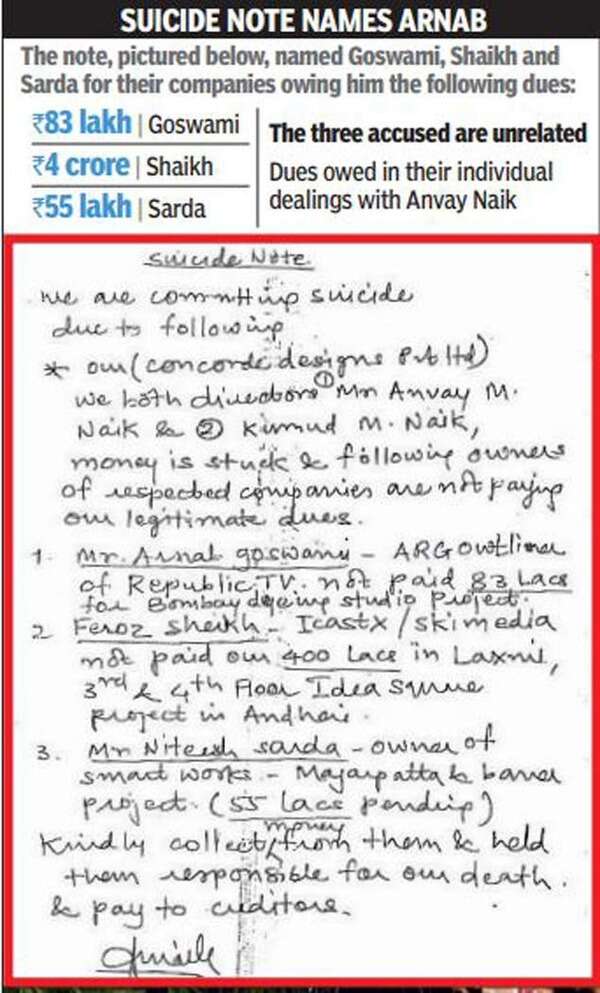 SUICIDE NOTE NAMES ARNAB
The note, pictured below, named Goswami, Shaikh and
Sarda for their companies owing him the following dues:
₹83 lakh | Goswami
₹4 crore | Shaikh
₹55 lakh | Sarda
The three accused are unrelated
Dues owed in their individual
dealings with Anvay Naik
Suicide Note.
We are committing suicide
due to following
* our (concorde designs Pvt ltd)
we both directors ① Mr Anvay M.
Naik & ② Kumud M. Naik,
money is stuck & following owners
of respected companies are not paying
our legitimate dues.
1. Mr. Arnab goswami - ARG outlier
of Republic TV. not paid 83 Lacs
for Bombay dyeing studio project.
2 Feroz Sheikh - IcastX / skimedia
not paid our 400 lacs in Laxmi,
3rd & 4th Floor Idea square
project in Andheri.
3. Mr Niteesh sarda - owner of
smart works - Magarpatta & baner
project. (55 lacs pending)
Kindly collect money from them & held
them responsible for our death.
& pay to creditors.